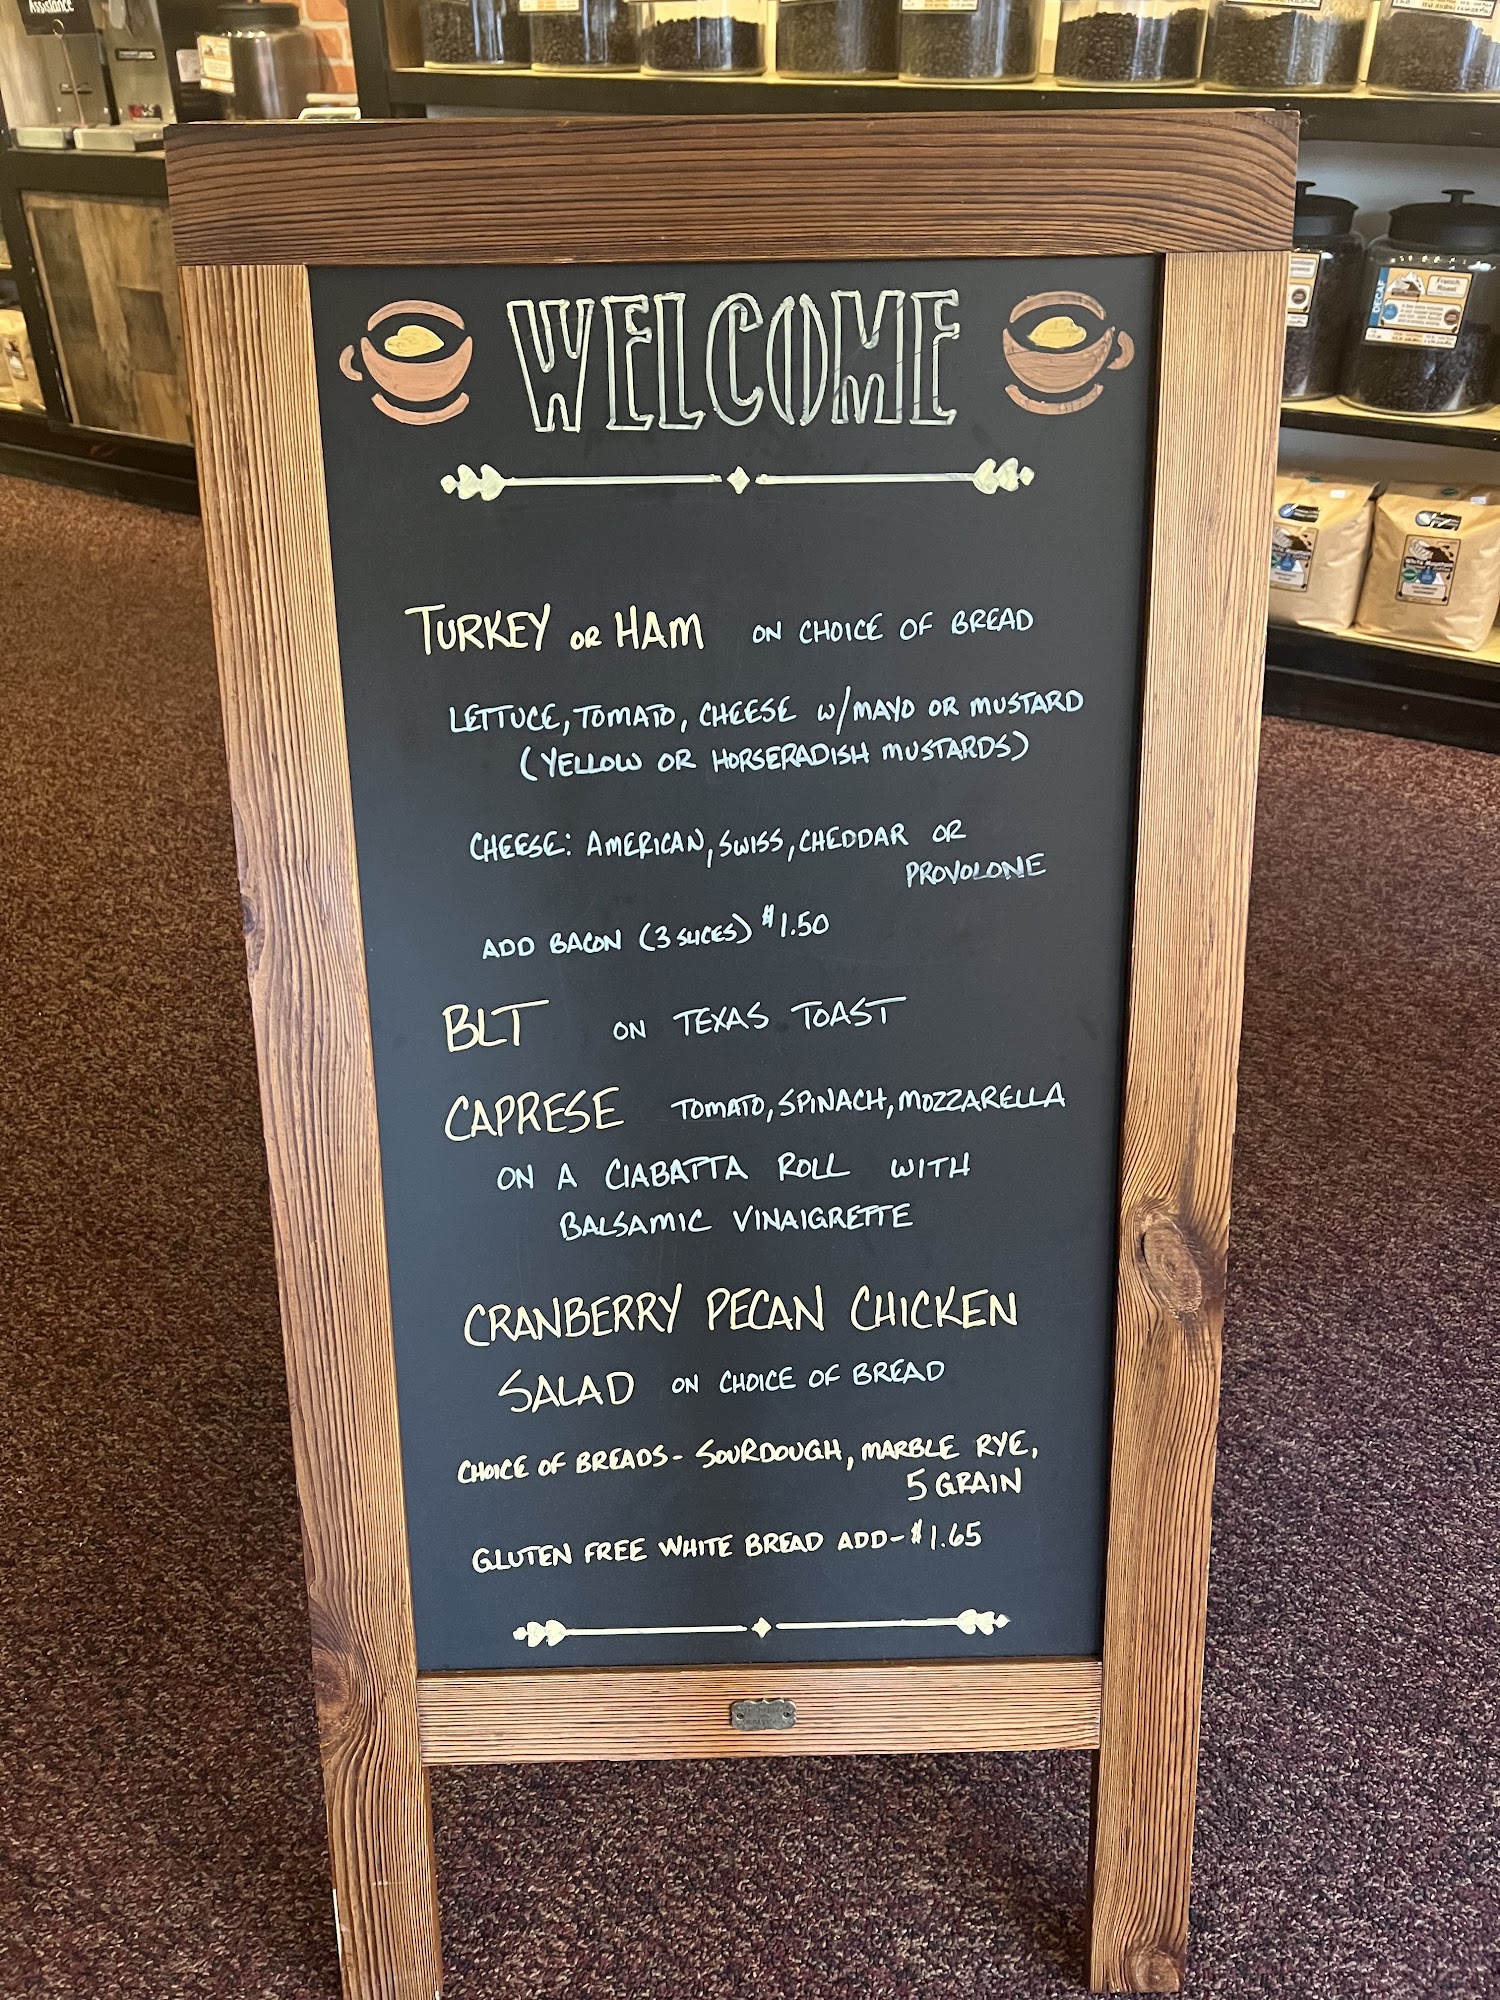 Assistance
WELCOME
TURKEY OR HAM ON CHOICE OF BREAD
LETTUCE, TOMATO, CHEESE W/MAYO OR MUSTARD
(YELLOW OR HORSERADISH MUSTARDS)
CHEESE: AMERICAN, SWISS, CHEDDAR OR
PROVOLONE
ADD BACON (3 SLICES) $1.50
BLT ON TEXAS TOAST
CAPRESE TOMATO, SPINACH, MOZZARELLA
ON A CIABATTA ROLL WITH
BALSAMIC VINAIGRETTE
CRANBERRY PECAN CHICKEN
SALAD ON CHOICE OF BREAD
CHOICE OF BREADS- SOURDOUGH, MARBLE RYE,
5 GRAIN
GLUTEN FREE WHITE BREAD ADD-$1.65
DECAF
French
Roast
White Mountain